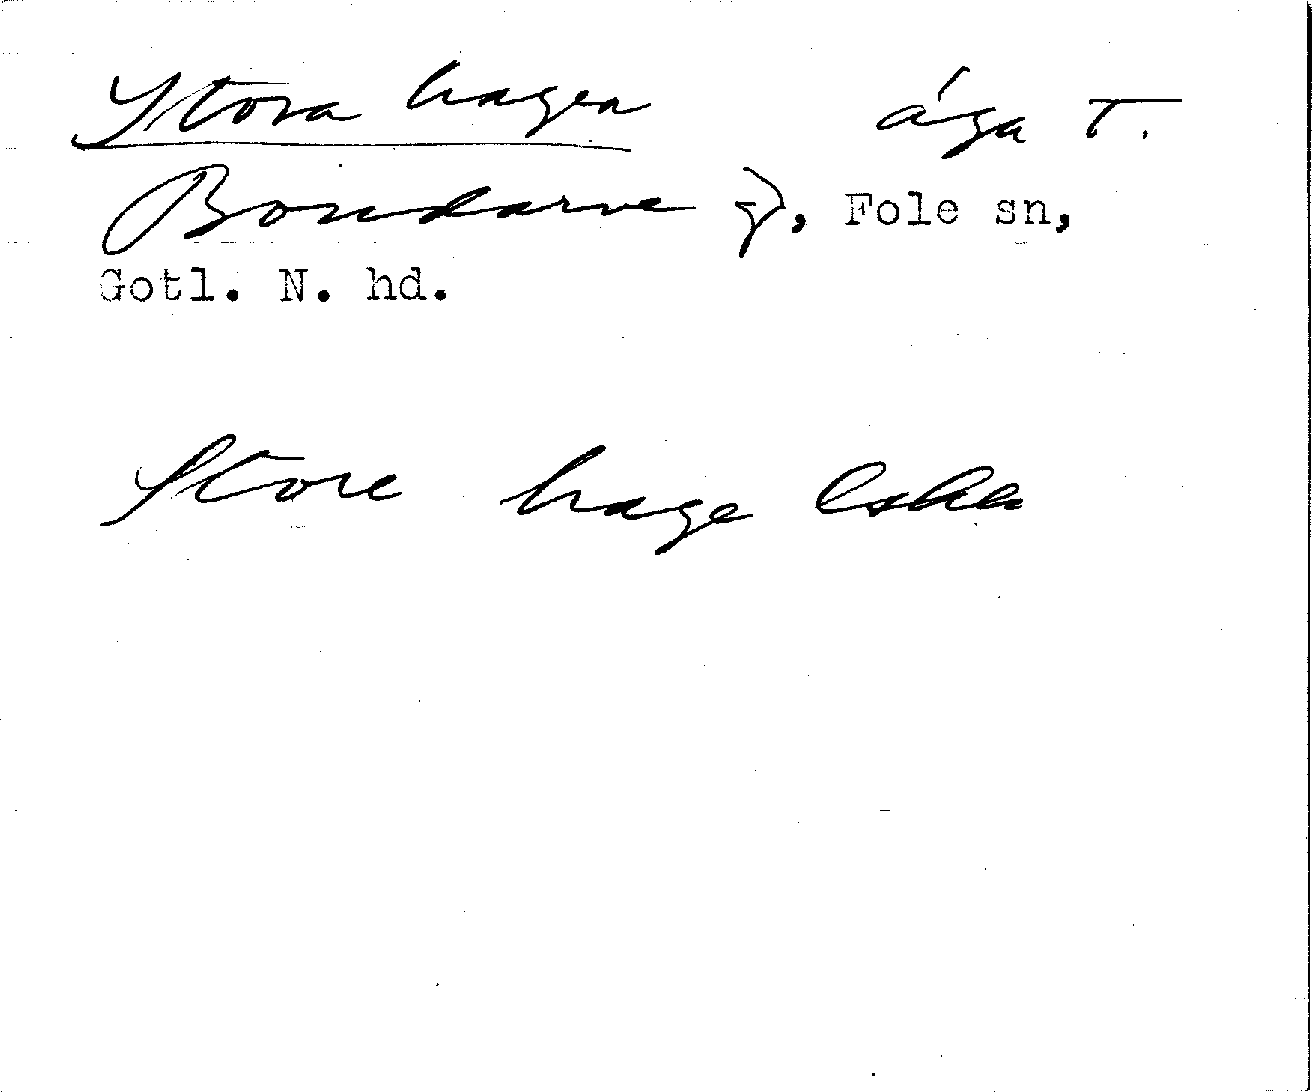 Stora hagen äga T.
Bondarve g), Fole sn,
Gotl. N. hd.
Store hage